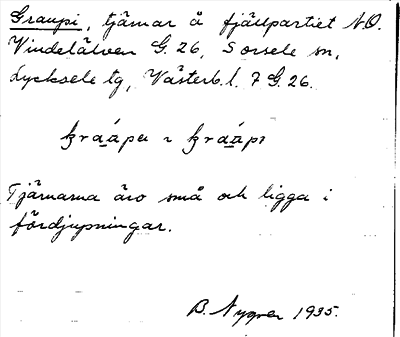 Graupi, tjärnar å fjällpartiet N.O.
Vindelälven G. 26, Sorsele sn,
Lycksele tg, Västerb. l. 7 G. 26.
Tjärnarna äro små och ligga i
fördjupningar.
B. Nygren 1935.